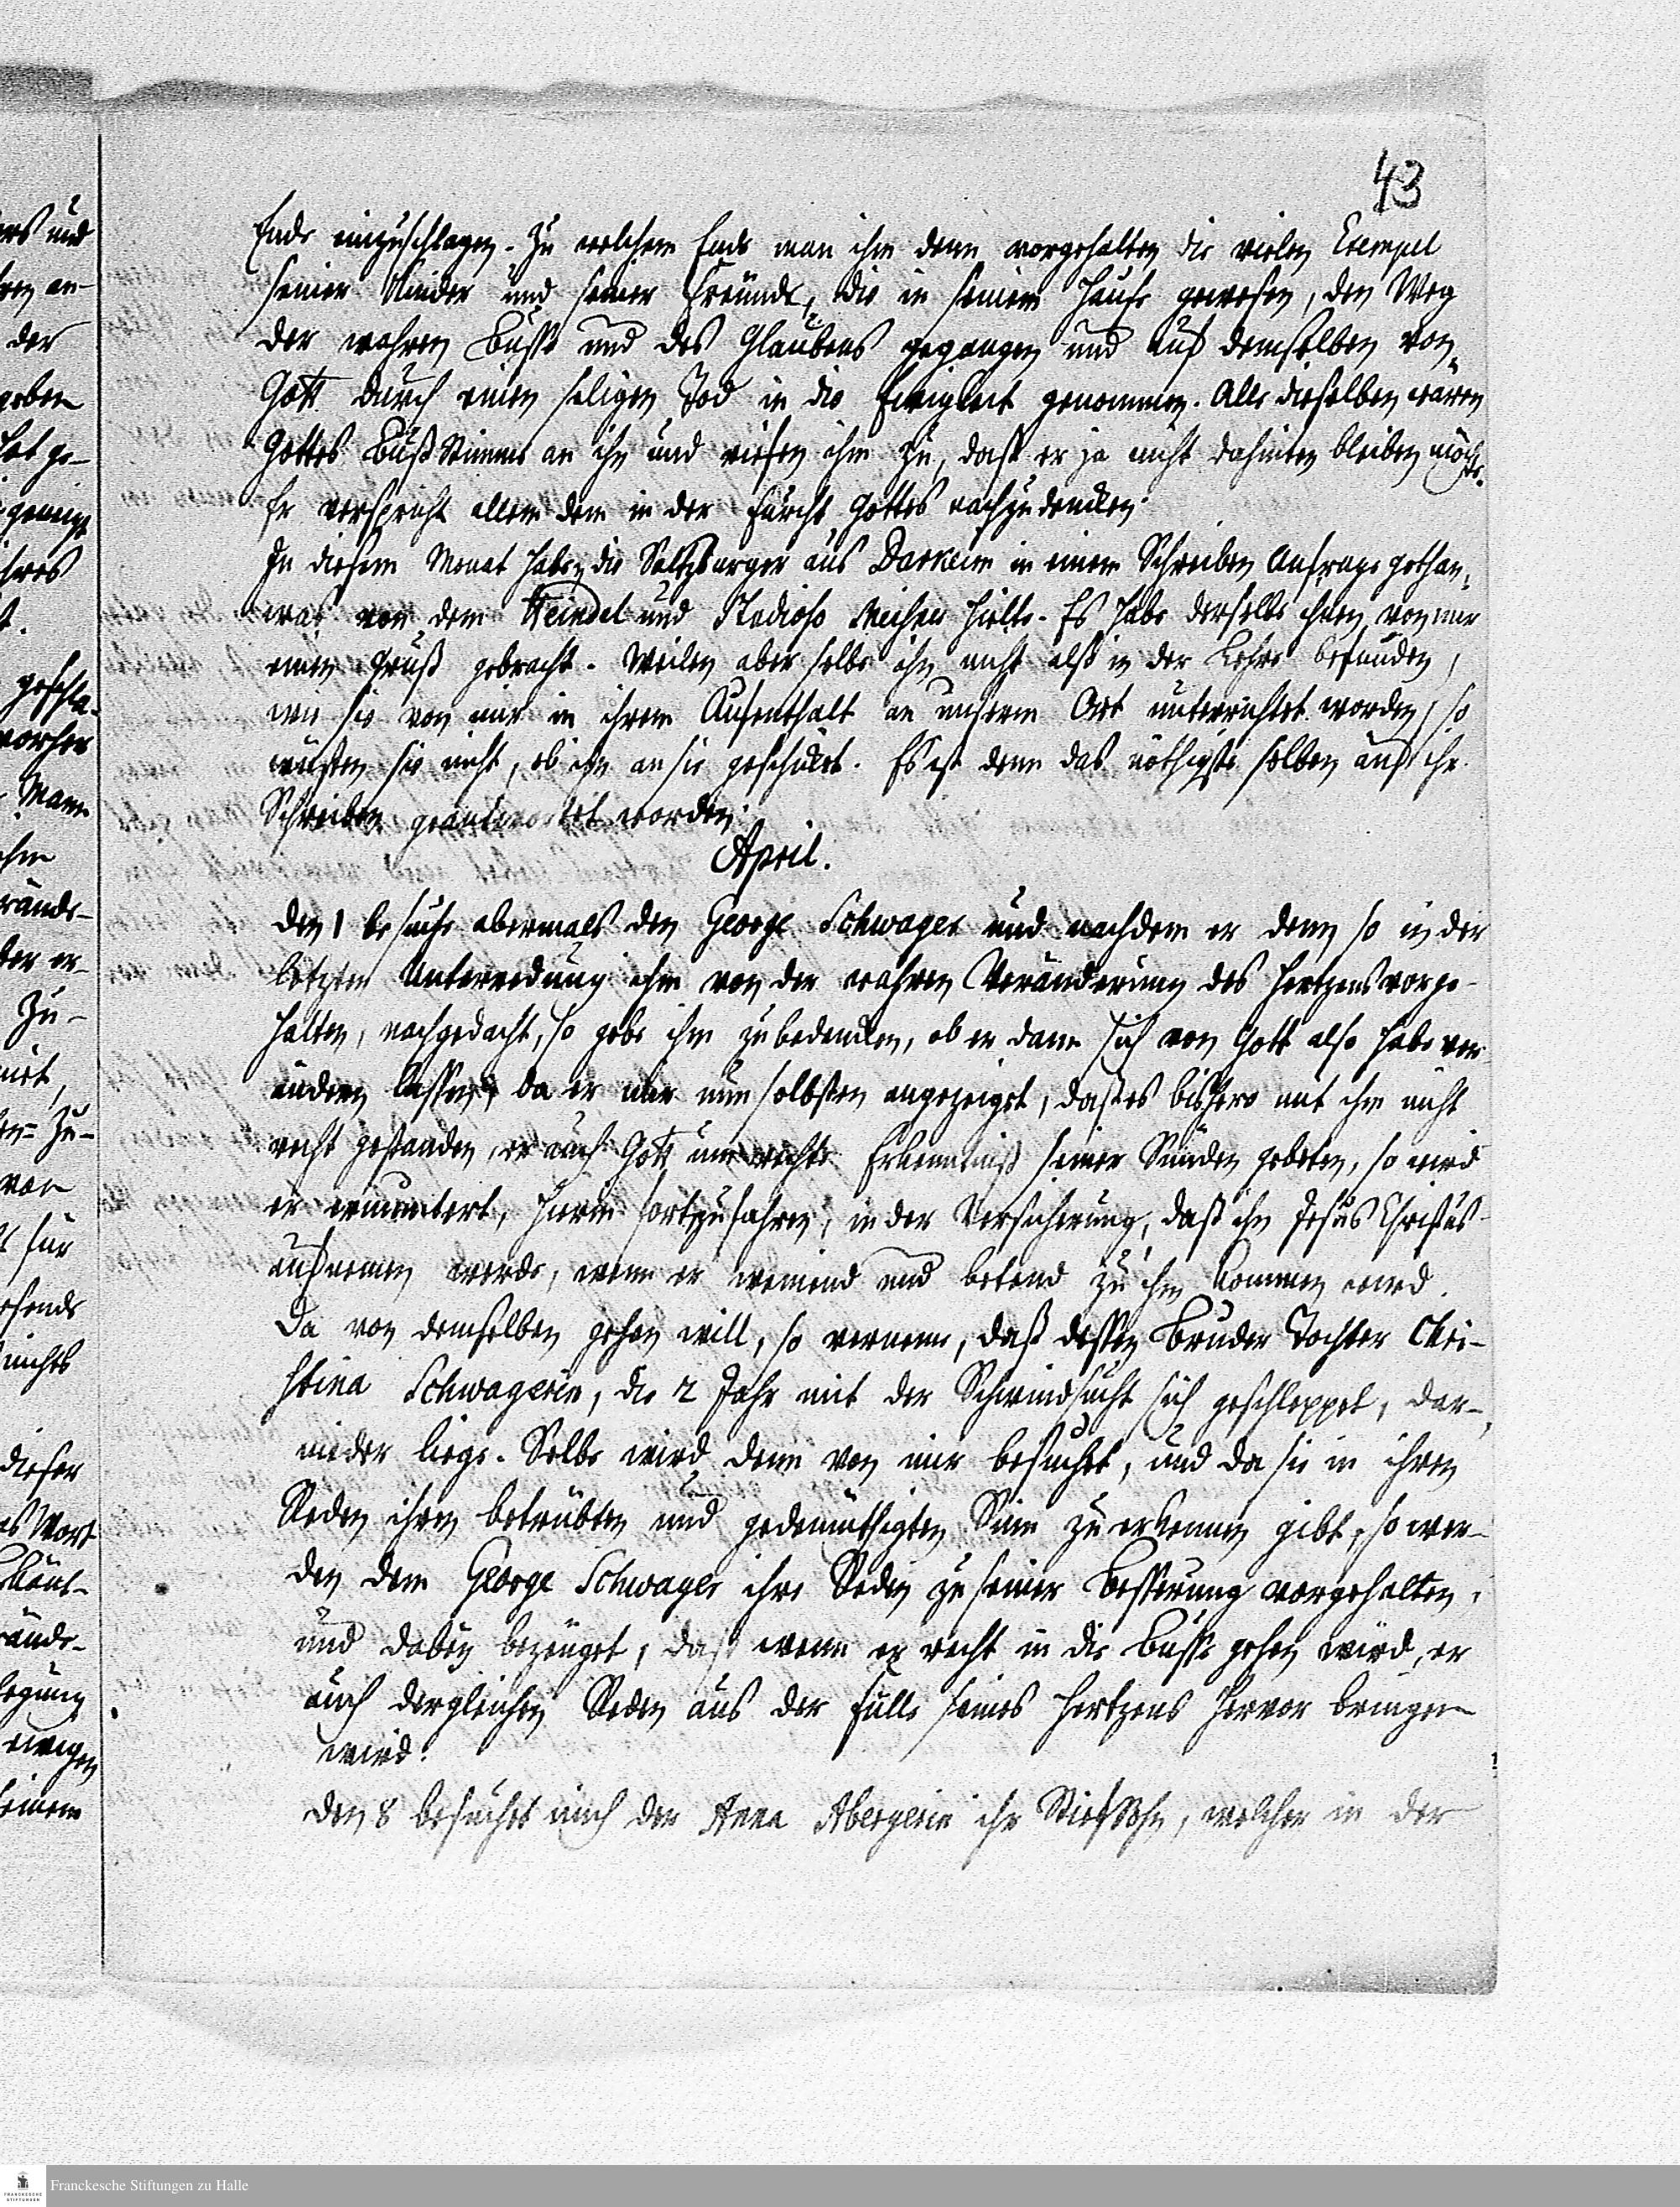 43
Ende einzuschlagen. Zu welchem Ende man ihm denn vorgehalten die vielen Exempel
seiner Kinder und seiner Freunde, die in seinem Hause gewesen, den Weg
der wahren Busse und des Glaubens gegangen und auf demselben von
Gott durch einen seligen Tod in die Ewigkeit genommen. Alle dieselben wären
Gottes Bußstimme an ihn und riefen ihm zu, daß er ja nicht dahinten bleiben möchte.
Er verspricht allem dem in der Furcht Gottes nachzudencken.
In diesem Monat haben die Saltzburger aus Darkeim in einem Schreiben Anfrage gethan,
was von dem Heindel und Studioso hielte. Es habe derselbe ihnen von mir
einen Gruß gebracht. Weilen aber selbe ihn nicht alß in der Lehre befunden,
wie sie von mir in ihrem Aufenthalt an unserm Ort unterrichtet worden, so
wüsten sie nicht, ob ihn an sie geschickt. Es ist denn das nöthigste selben auf ihr
Schreiben geantwortet worden.
April.
den 1 besuche abermals den George Schwager und nachdem er dem so in der
letztern Unterredung ihm von der wahren Veränderung des Hertzens vorge-
halten, nachgedacht, so gebe ihm zu bedencken, ob er dann sich von Gott also habe ver
ändern lassen, da er mir nun selbsten angezeiget, daß es bißhero mit ihm nicht
recht gestanden, er auch Gott um rechte Erkenntniß seiner Sünden gebeten, so wird
er ermuntert, hierin fortzufahren, in der Versicherung, daß ihn Jesus Christus
aufnemen werde, wenn er weinend und betend zu ihm kommen wird.
Da von demselben gehen will, so vernem, daß dessen Bruder Tochter Chri-
stina Schwagerin, die 2 Jahr mit der Schwindsucht sich geschleppet, dar-
nieder liege. Selbe wird denn von mir besucht, und da sie in ihren
Reden ihren betrübten und gedemüthigten Sinn zu erkennen gibt, so wer-
den dem George Schwager ihre Reden zu seiner Besserung vorgehalten,
und dabey bezeuget, daß wenn er recht in die Busse gehen wird, er
auch dergleichen Reden aus der Fülle seines Hertzens hervor bringen
wird.
den 8 besuchet mich der Anna Abergerin ihr Stiefsohn, welcher in der
Franckesche Stiftungen zu Halle